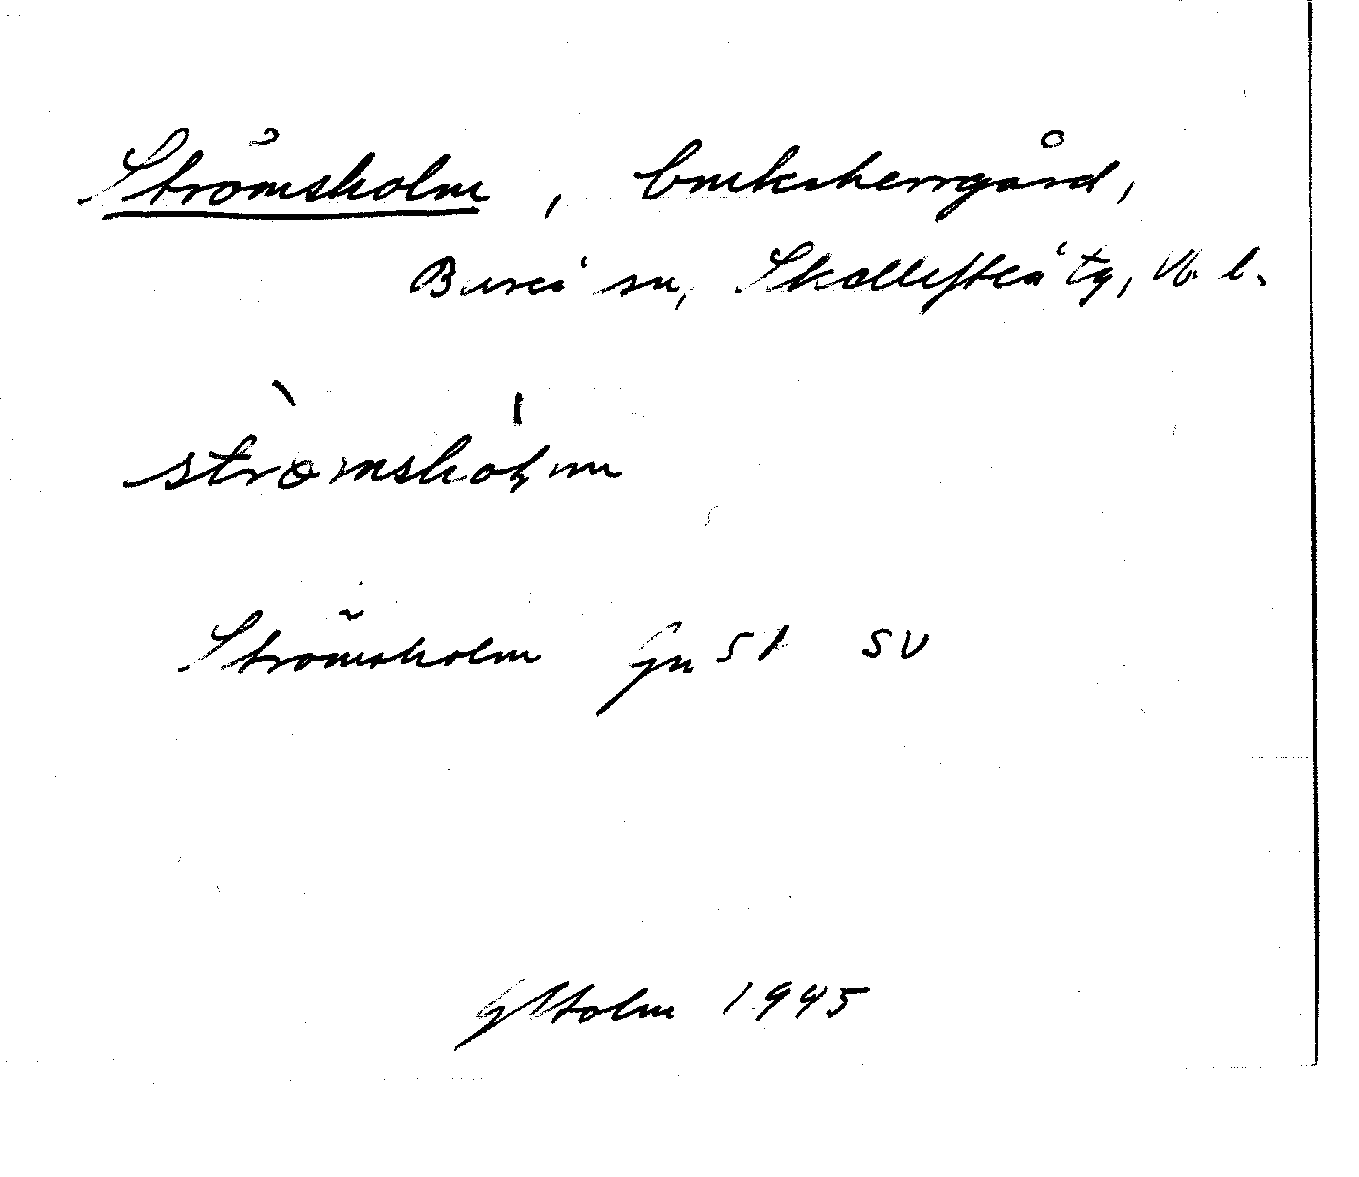 Strömsholm, bruksherrgård,
Bureå sn, Skellefteå tg, Vb l.
Strömsholm Gn 51 SV
GHolm 1945